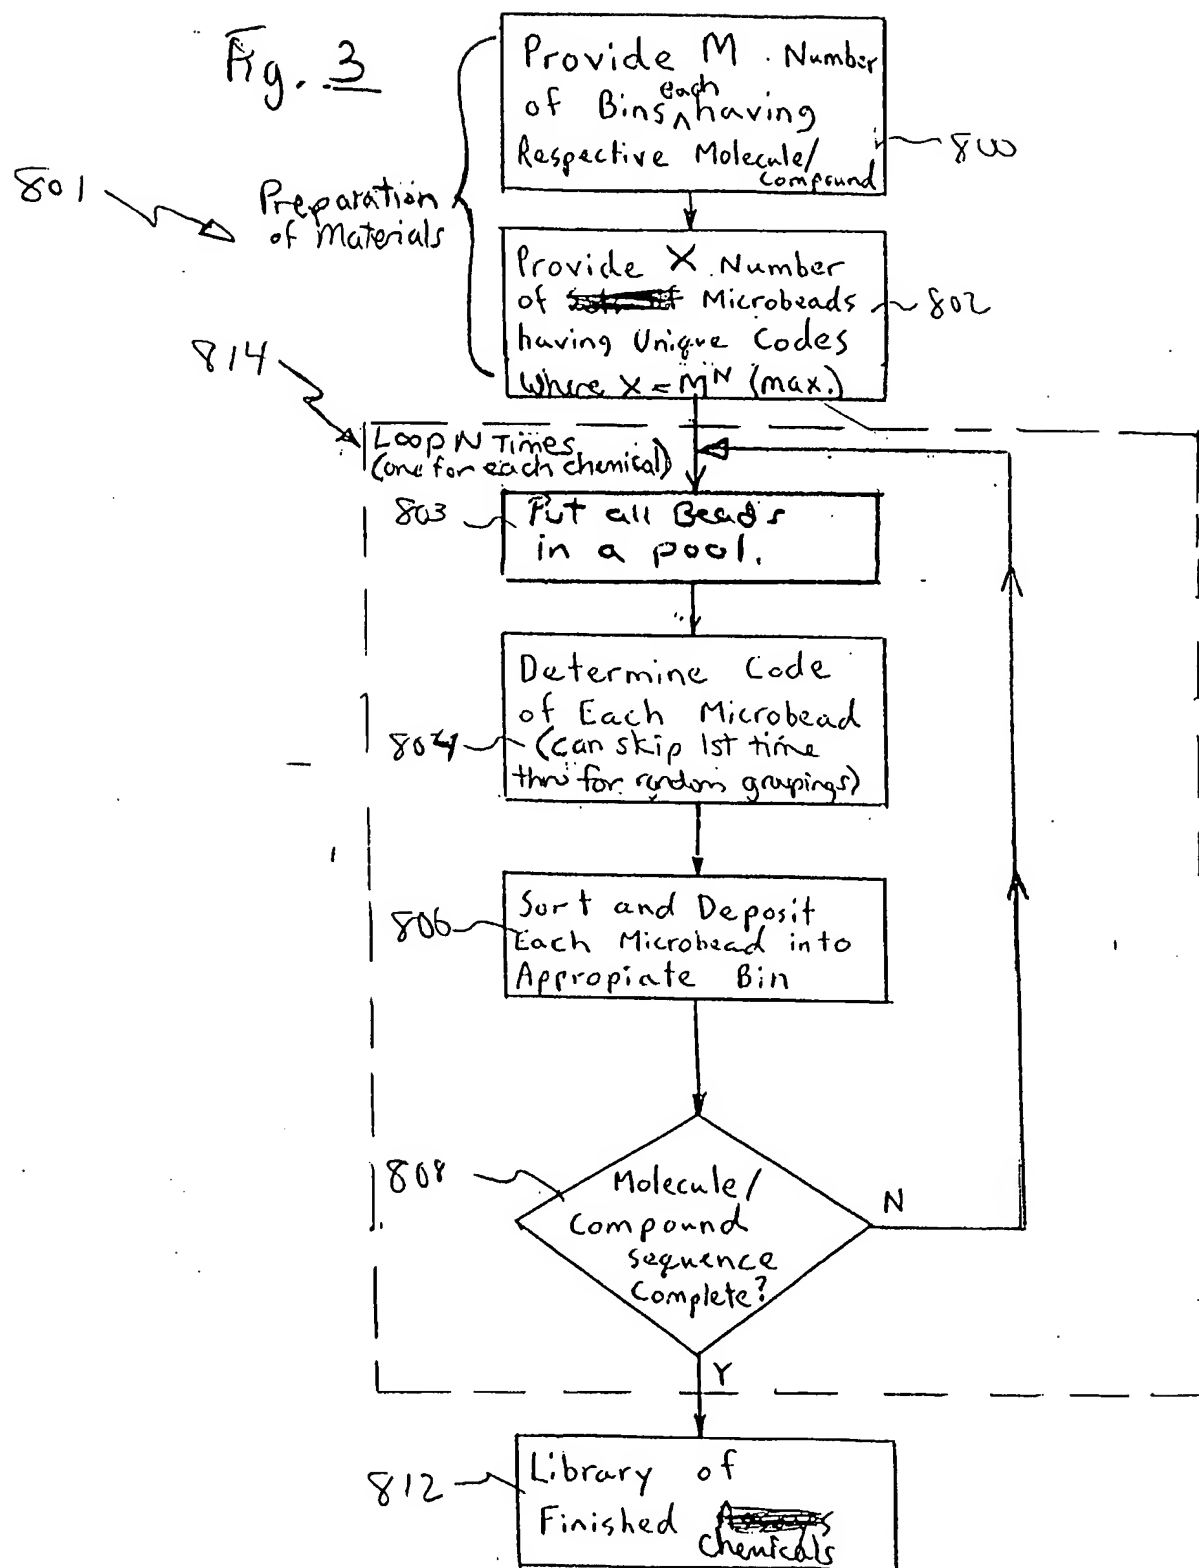 Fig. 3
Provide M Number
of Bins each having
Respective Molecule/
Compound
800
801
Preparation
of Materials
Provide X Number
of Microbeads
having Unique Codes
Where X = M^N (max.)
802
814
Loop N Times
(one for each chemical)
803
Put all Beads
in a pool.
Determine Code
of Each Microbead
(can skip 1st time
thru for random groupings)
804
806
Sort and Deposit
Each Microbead into
Appropiate Bin
808
Molecule/
Compound
sequence
Complete?
N
Y
812
Library of
Finished
Chemicals